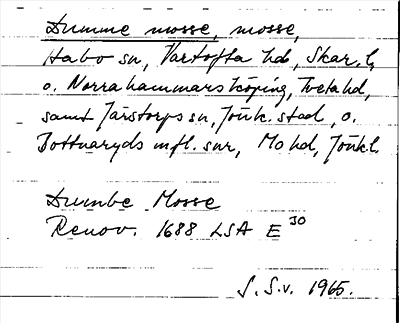 Dumme mosse, mosse,
Habo sn, Vartofta hd, Skar. l,
o. Norrahammars köping, Tveta hd,
samt Järstorps sn, Jönk. stad, o.
Bottnaryds m.fl. snr, Mo hd, Jönk. l.
Dumbe Mosse
Renov. 1688 LSA E 30
S. S.v. 1965.